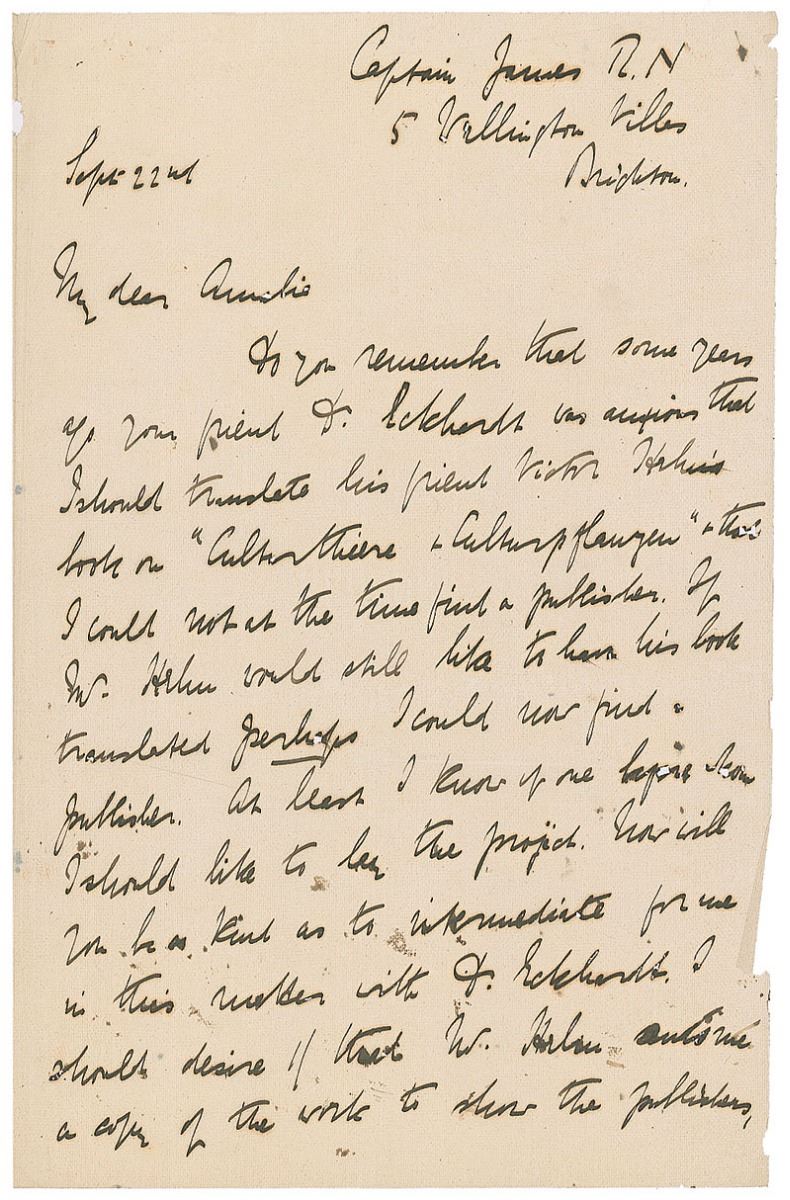 Captain James R.N
5 Wellington Villas
Brighton.
Sept 22nd
My dear Amelie
Do you remember that some years
ago your friend Dr. Eckhardt was anxious that
I should translate his friend Victor Hehn's
book on "Culturthiere + Culturpflanzen" + that
I could not at the time find a publisher. If
Mr. Hehn would still like to have his book
translated perhaps I could now find a
publisher. At least I know of one before whom
I should like to lay the project. Now will
you be so kind as to intermediate for me
in this matter with Dr. Eckhardt. I
should desire 1/ that Mr. Hehn send me
a copy of the work to show the publishers,